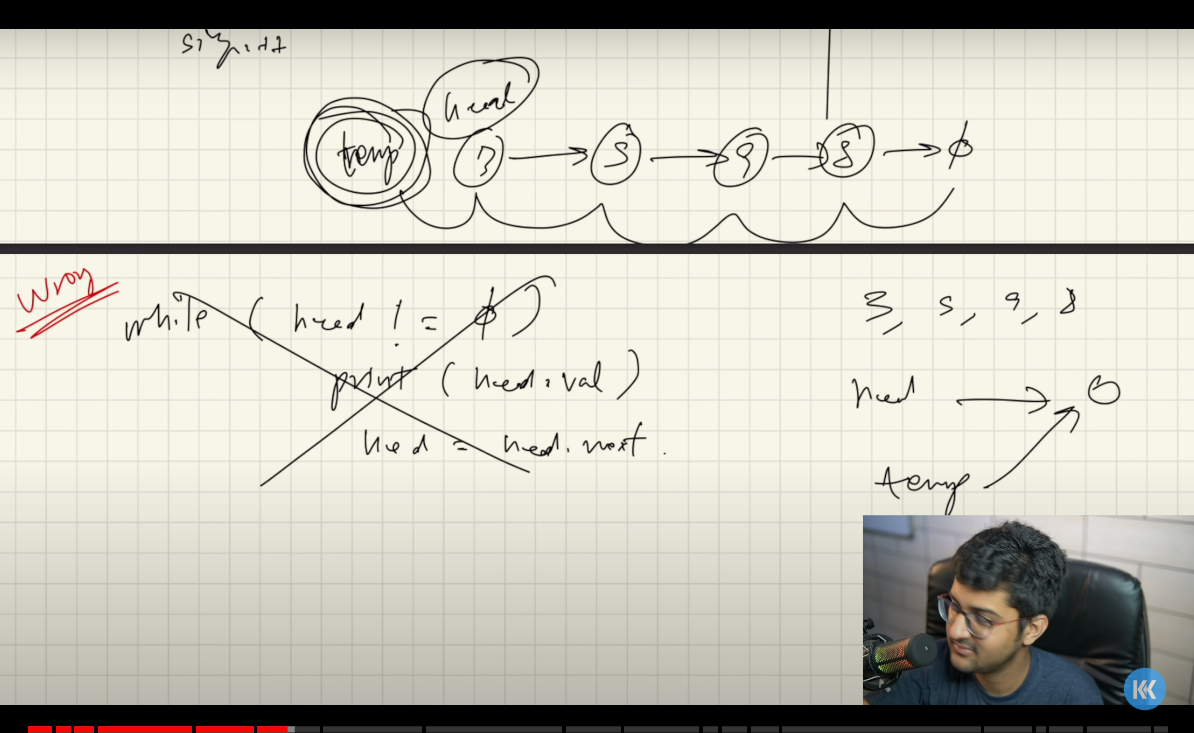 head
temp 3 → 5 → 9 → 8 → ϕ
Wrong
while ( head ! = ϕ )
print ( head.val )
head = head.next.
3, 5, 9, 8
head → O
temp
KK